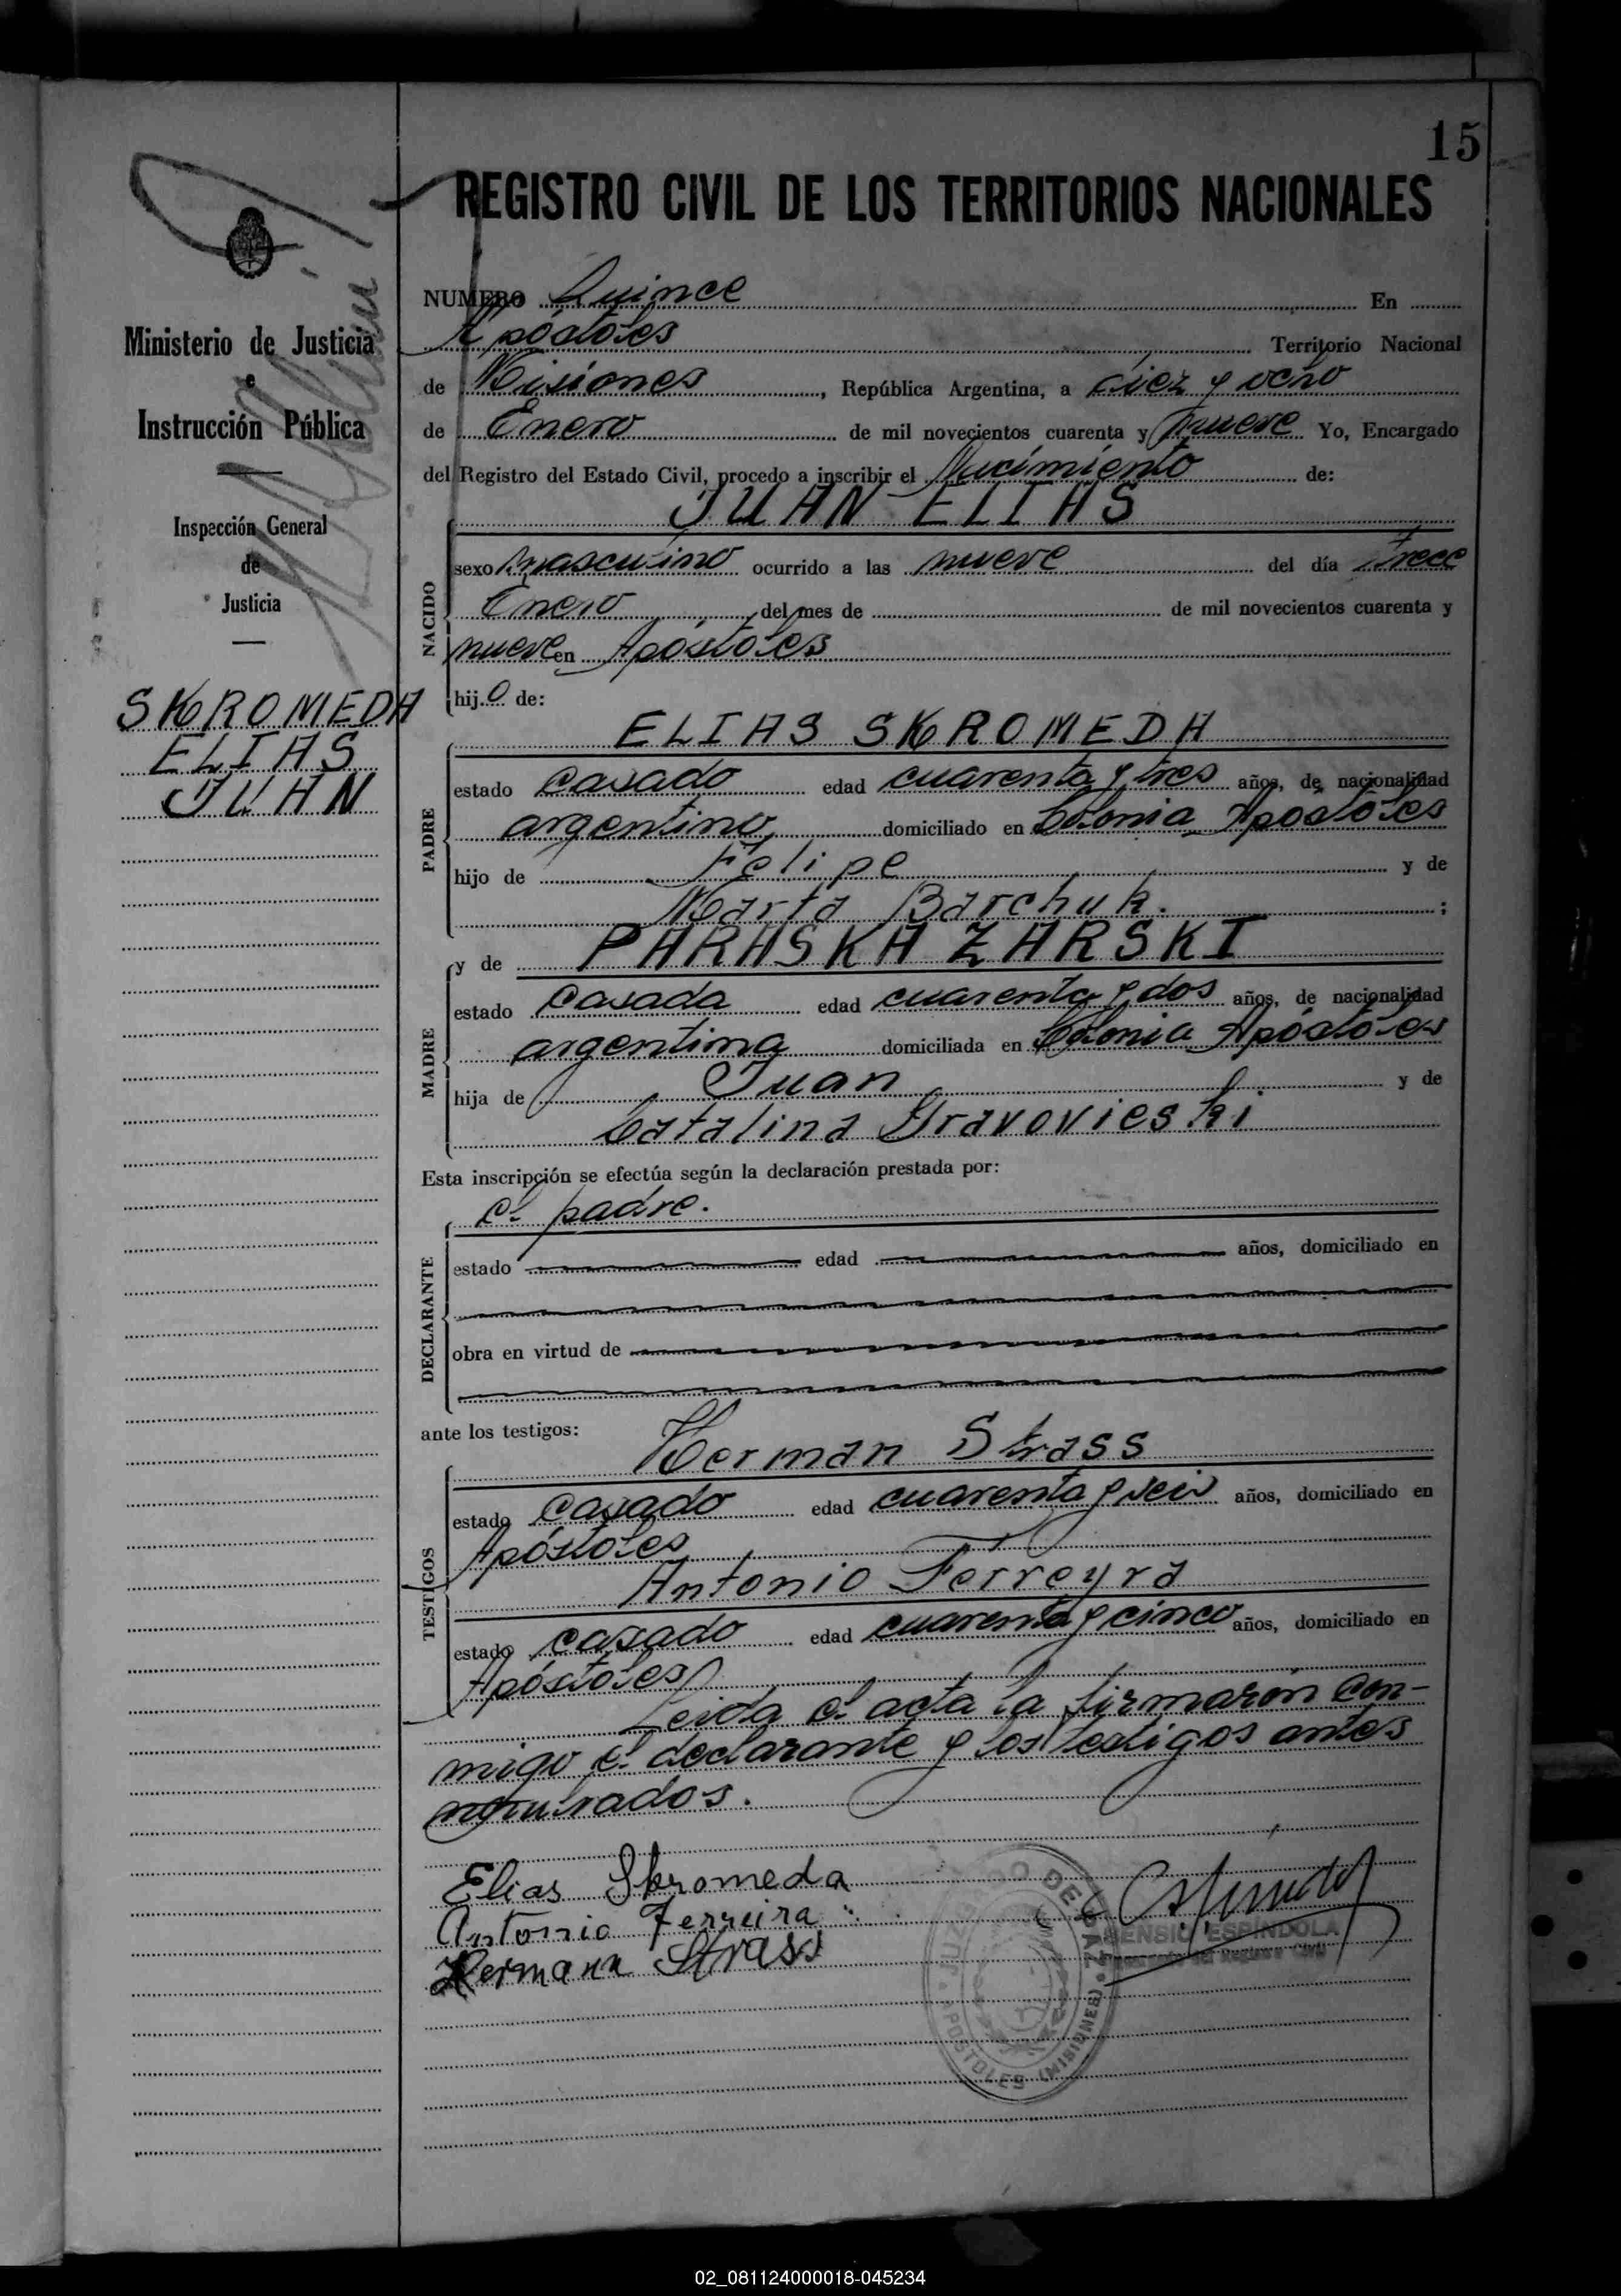 15
REGISTRO CIVIL DE LOS TERRITORIOS NACIONALES
Ministerio de Justicia
e
Instrucción Pública
Inspección General
de
Justicia
SKROMEDA
ELIAS
JUAN
NUMERO Quince En
Apóstoles Territorio Nacional
de Misiones, República Argentina, a diez y ocho
de Enero de mil novecientos cuarenta y nueve Yo, Encargado
del Registro del Estado Civil, procedo a inscribir el Nacimiento de:
JUAN ELIAS
NACIDO
sexo masculino ocurrido a las nueve del día trece
Enero del mes de de mil novecientos cuarenta y
nueve en Apóstoles
hij.o de:
ELIAS SKROMEDA
PADRE
estado casado edad cuarenta y tres años, de nacionalidad
argentino, domiciliado en Colonia Apóstoles
hijo de Felipe y de
Marta Barchuk. ;
y de PARASKA ZARSKI
MADRE
estado casada edad cuarenta y dos años, de nacionalidad
argentina domiciliada en Colonia Apóstoles
hija de Juan y de
Catalina Gravovieski
Esta inscripción se efectúa según la declaración prestada por:
el padre.
DECLARANTE
estado edad años, domiciliado en
obra en virtud de
ante los testigos:
Herman Strass
TESTIGOS
estado casado edad cuarenta y seis años, domiciliado en
Apóstoles
Antonio Ferreyra
estado casado edad cuarenta y cinco años, domiciliado en
Apóstoles
Leida el acta la firmaron con-
migo el declarante y los testigos antes
Elias Skromeda
Antonio Ferreira
Hermann Strass
JUZGADO DE PAZ
APOSTOLES (MISIONES)
ESPINDOLA
02_081124000018-045234